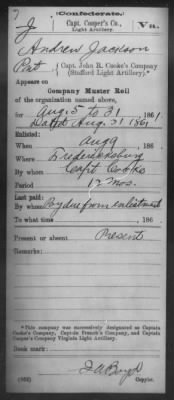 (Confederate.)
J Capt. Cooper's Co., Va.
Light Artillery.
Andrew Jackson
Pvt, Capt. John R. Cooke's Company
(Stafford Light Artillery).*
Appears on
Company Muster Roll
of the organization named above,
for Aug. 5 to 31, 1861.
Dated Aug. 31 1861
Enlisted:
When Aug 9, 186 .
Where Fredericksburg
By whom Capt Cooke
Period 12 mos.
Last paid:
By whom Pay due from enlistment
To what time , 186 .
Present or absent Present
Remarks:
*This company was successively designated as Captain
Cooke's Company, Captain French's Company, and Captain
Cooper's Company Virginia Light Artillery.
Book mark:
J A Boyd
Copyist.